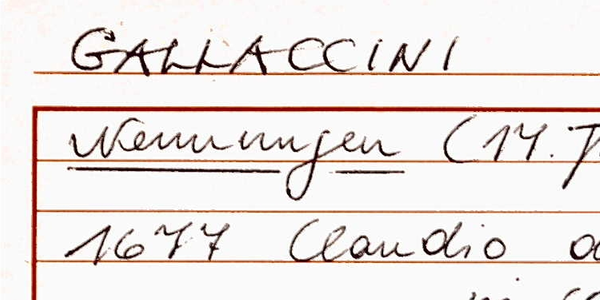 GALLACCINI
Nennungen (17. J
1677 Claudio